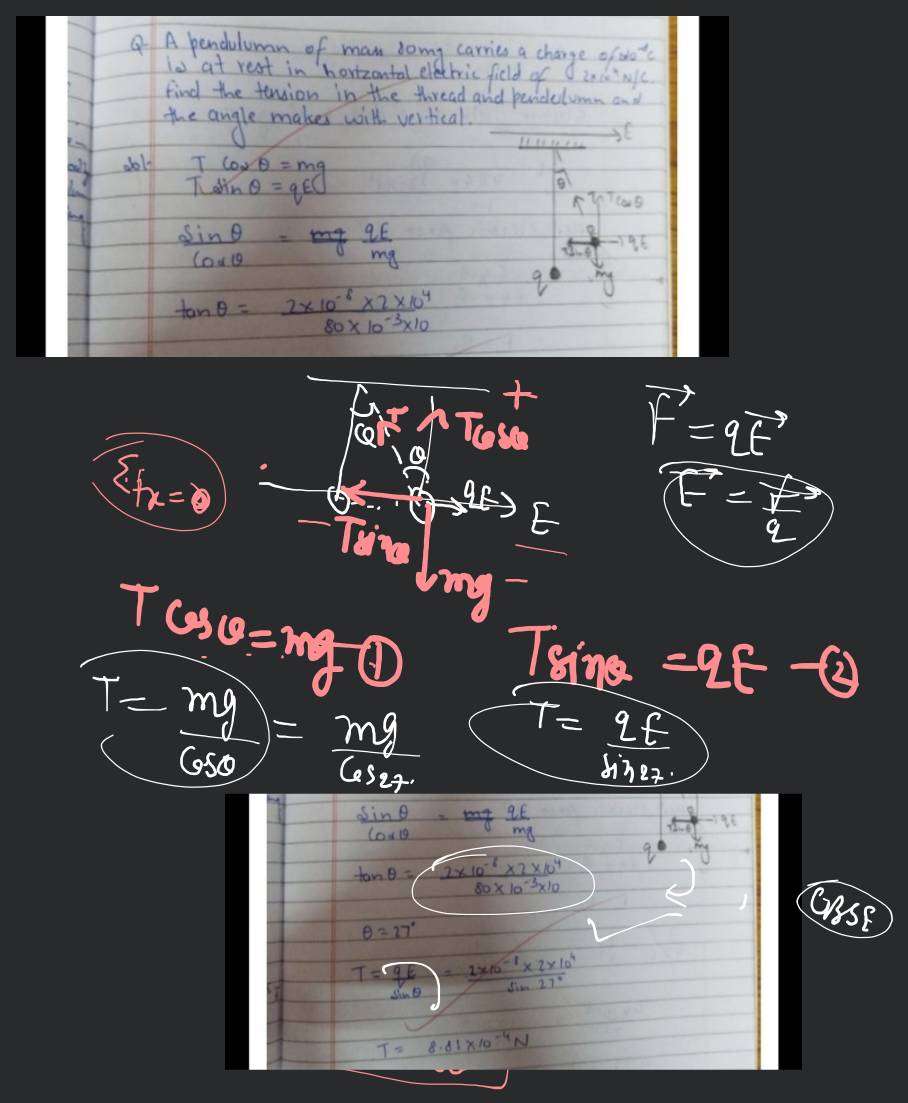 Q- A pendulumn of mass 80mg carries a charge of
is at rest in horizontal electric field of 2x10⁴ N/C.
find the tension in the thread and pendulumn and
the angle makes with vertical.
E
sol:- T cos θ = mg
T sin θ = qE
θ
T Tcosθ
sin θ / cos θ = mg qE / mg
qE
Tsinθ
q mg
tan θ = 2×10⁻⁸ ×2×10⁴ / 80×10⁻³×10
+
T Tcosθ
θ θ
F = qE
Σfx = 0
qE E
E = F/q
- Tsinθ
mg -
Tcosθ = mg -①
Tsinθ = qE -②
T = mg/cosθ = mg/cos27.
T = qE/sin27.
sin θ / cos θ = mg qE / mg
qE
Tsinθ
q mg
tan θ = 2×10⁻⁸ ×2×10⁴ / 80×10⁻³×10
CBSE
θ = 27°
T = qE/sinθ = 2×10⁻⁸×2×10⁴ / sin 27°
T = 8.81×10⁻⁴N